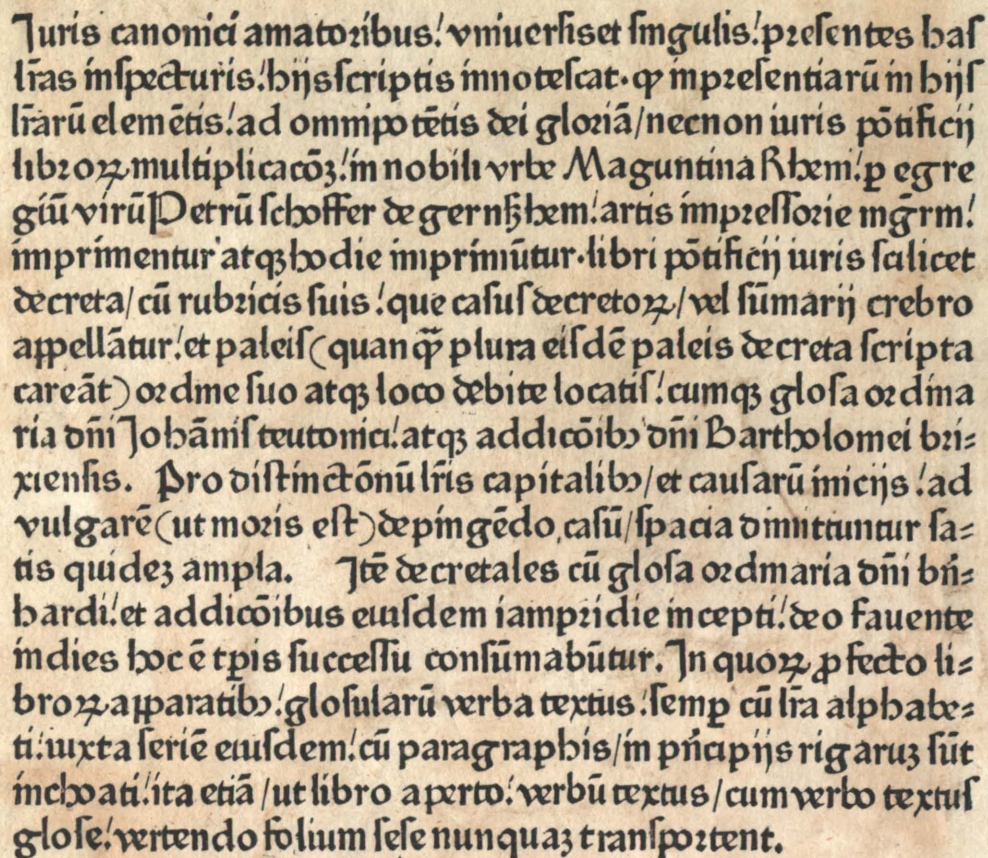 Iuris canonici amatoribus! vniuersiset singulis! presentes has
lr̃as inspecturis! hijsscriptis innotescat. ꝙ inpresentiarū in hijs
lr̃arū elemētis! ad omnipotētis dei gloriā/necnon iuris pōtificij
libroꝝ multiplicacōꝫ! in nobili vrbe Maguntina Rheni! ꝑ egre
giū virū Petrū schoffer de gernsꝫhem! artis impressorie mgr̃m!
imprimentur atqꝫ hodie imprimūtur. libri pōtificij iuris scilicet
decreta/ cū rubricis suis! que casus decretoꝝ/ vel sūmarij crebro
appellātur! et paleis (quanqꝫ̄ plura eisdē paleis decreta scripta
careāt) ordine suo atqꝫ loco debite locatis! cumqꝫ glosa ordina
ria dn̄i Johānis teutonici! atqꝫ addicōibꝫ dn̄i Bartholomei bri⸗
xiensis. Pro distinctōnū lr̃is capitalibꝫ/ et causarū inicijs! ad
vulgarē (ut moris est) depingēdo, casū/ spacia dimittuntur sa⸗
tis quideꝫ ampla. Itē decretales cū glosa ordinaria dn̄i bn̄⸗
hardi! et addicōibus eiusdem iampridie incepti! deo fauente
indies hoc ē tꝑis successu consūmabūtur. In quoꝝ ꝓfecto li⸗
broꝝ apparatibꝫ! glosularū verba textus! semꝑ cū lr̃a alphabe⸗
ti! iuxta seriē eiusdem! cū paragraphis/ in pn̄cipijs rigaruꝫ sūt
inchoati! ita etiā/ ut libro aperto! verbū textus/ cum verbo textus
glose! vertendo folium sese nunquaꝫ transportent.